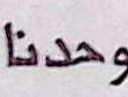 وحدنا